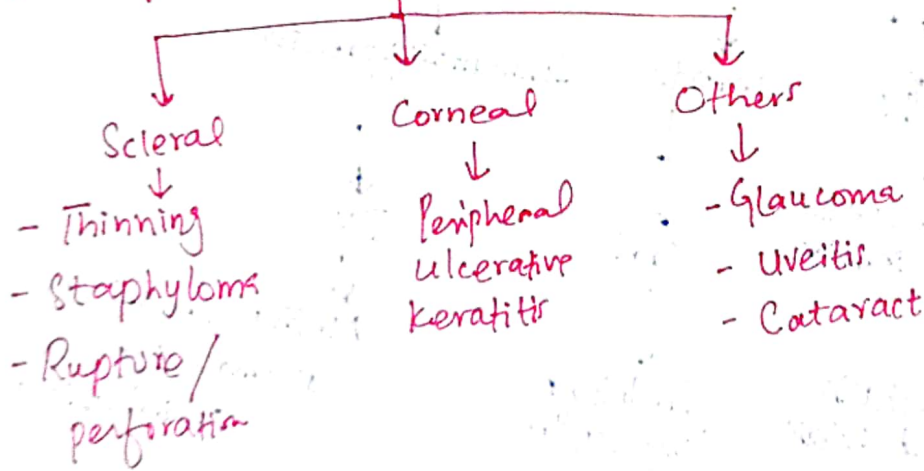 Scleral
- Thinning
- Staphyloma
- Rupture/
perforation
Corneal
Peripheral
ulcerative
keratitis
Others
- Glaucoma
- Uveitis
- Cataract